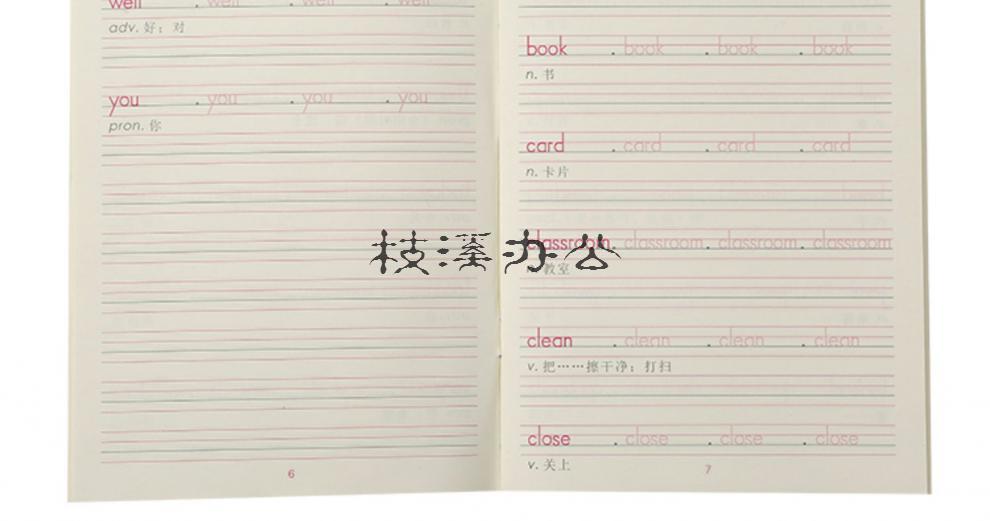 well . well . well . well
adv. 好；对
you . you . you . you
pron. 你
6
book . book . book . book
n. 书
card . card . card . card
n. 卡片
classroom . classroom . classroom . classroom
n. 教室
clean . clean . clean . clean
v. 把……擦干净；打扫
close . close . close . close
v. 关上
7
枝溪办公